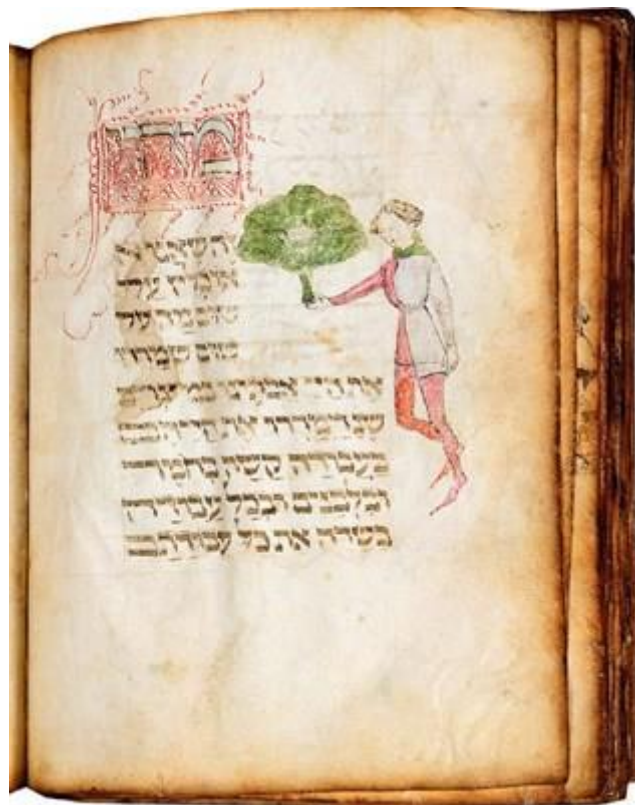 מרור
זה שאנו
אוכלין על
שום מה על
שום שמררו
את חיי אבותינו במצרים
וימררו את חייהם
בעבודה קשה בחמר
ובלבנים ובכל עבודה
בשדה את כל עבודתם